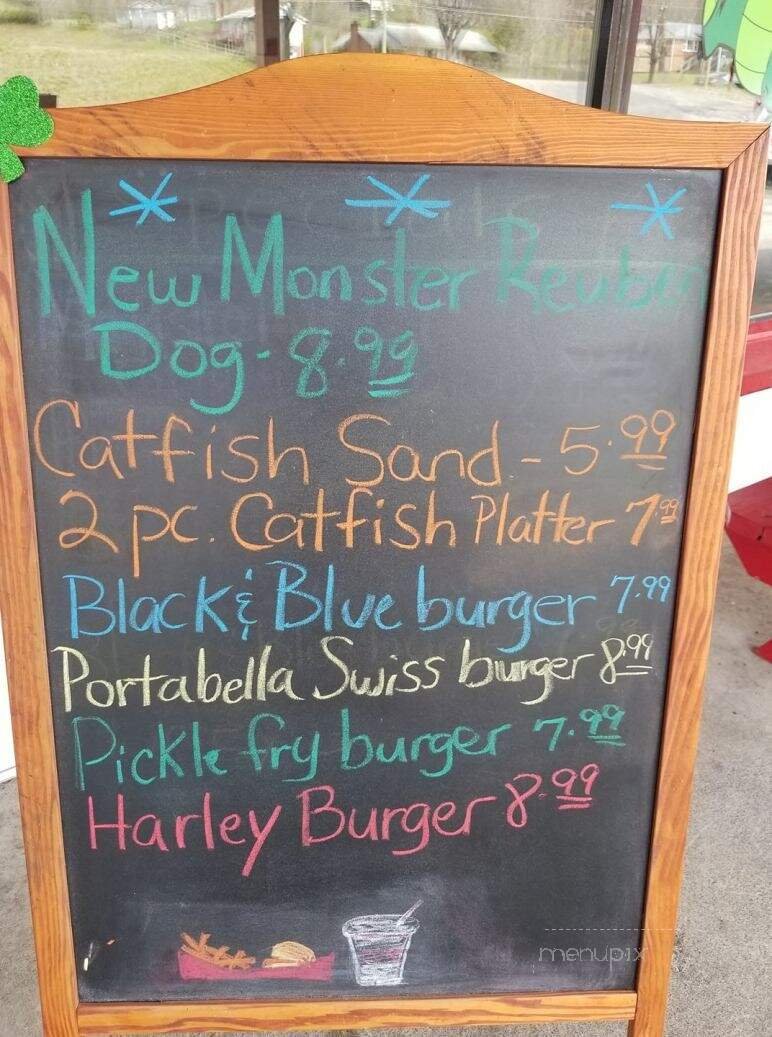 New Monster Reuben
Dog - 8.99
Catfish Sand - 5.99
2 pc. Catfish Platter 7.99
Black & Blue burger 7.99
Portabella Swiss burger 8.99
Pickle fry burger 7.99
Harley Burger 8.99
menupix